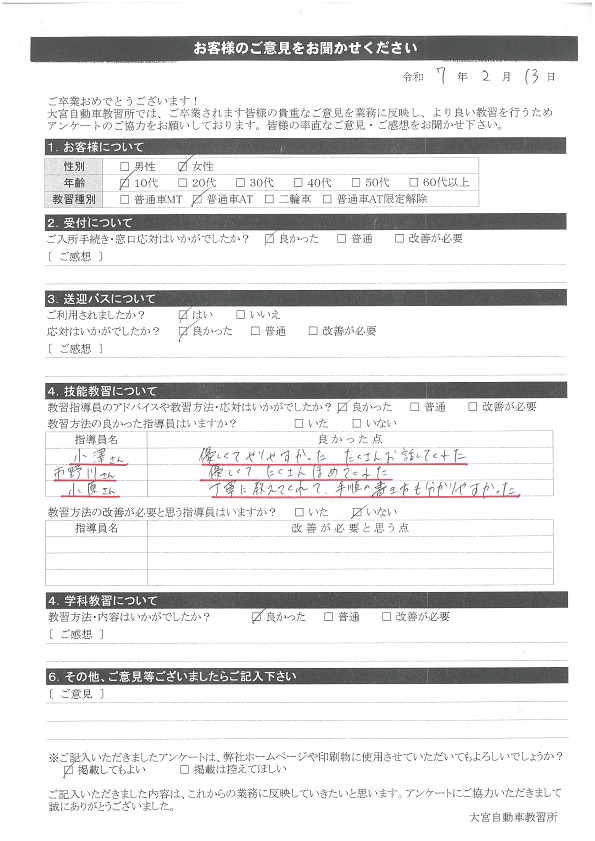 お客様のご意見をお聞かせください
令和 7 年 2 月 13 日
ご卒業おめでとうございます！
大宮自動車教習所では、ご卒業されます皆様の貴重なご意見を業務に反映し、より良い教習を行うため
アンケートのご協力をお願いしております。皆様の率直なご意見・ご感想をお聞かせ下さい。
1. お客様について
性別 □ 男性 ☑ 女性
年齢 ☑ 10代 □ 20代 □ 30代 □ 40代 □ 50代 □ 60代以上
教習種別 □ 普通車MT ☑ 普通車AT □ 二輪車 □ 普通車AT限定解除
2. 受付について
ご入所手続き・窓口応対はいかがでしたか？ ☑ 良かった □ 普通 □ 改善が必要
［ ご感想 ］
3. 送迎バスについて
ご利用されましたか？ ☑ はい □ いいえ
応対はいかがでしたか？ ☑ 良かった □ 普通 □ 改善が必要
［ ご感想 ］
4. 技能教習について
教習指導員のアドバイスや教習方法・応対はいかがでしたか？ ☑ 良かった □ 普通 □ 改善が必要
教習方法の良かった指導員はいますか？ □ いた □ いない
指導員名 良かった点
小澤さん 優しくてやりやすかった たくさんお話してくれた
市野川さん 優しくて たくさんほめてくれた
小原さん 丁寧に教えてくれて、手順の書き方も分かりやすかった
教習方法の改善が必要と思う指導員はいますか？ □ いた ☑ いない
指導員名 改善が必要と思う点
4. 学科教習について
教習方法・内容はいかがでしたか？ ☑ 良かった □ 普通 □ 改善が必要
［ ご感想 ］
6. その他、ご意見等ございましたらご記入下さい
［ ご意見 ］
※ご記入いただきましたアンケートは、弊社ホームページや印刷物に使用させていただいてもよろしいでしょうか？
☑ 掲載してもよい □ 掲載は控えてほしい
ご記入いただきました内容は、これからの業務に反映していきたいと思います。アンケートにご協力いただきまして
誠にありがとうございました。
大宮自動車教習所